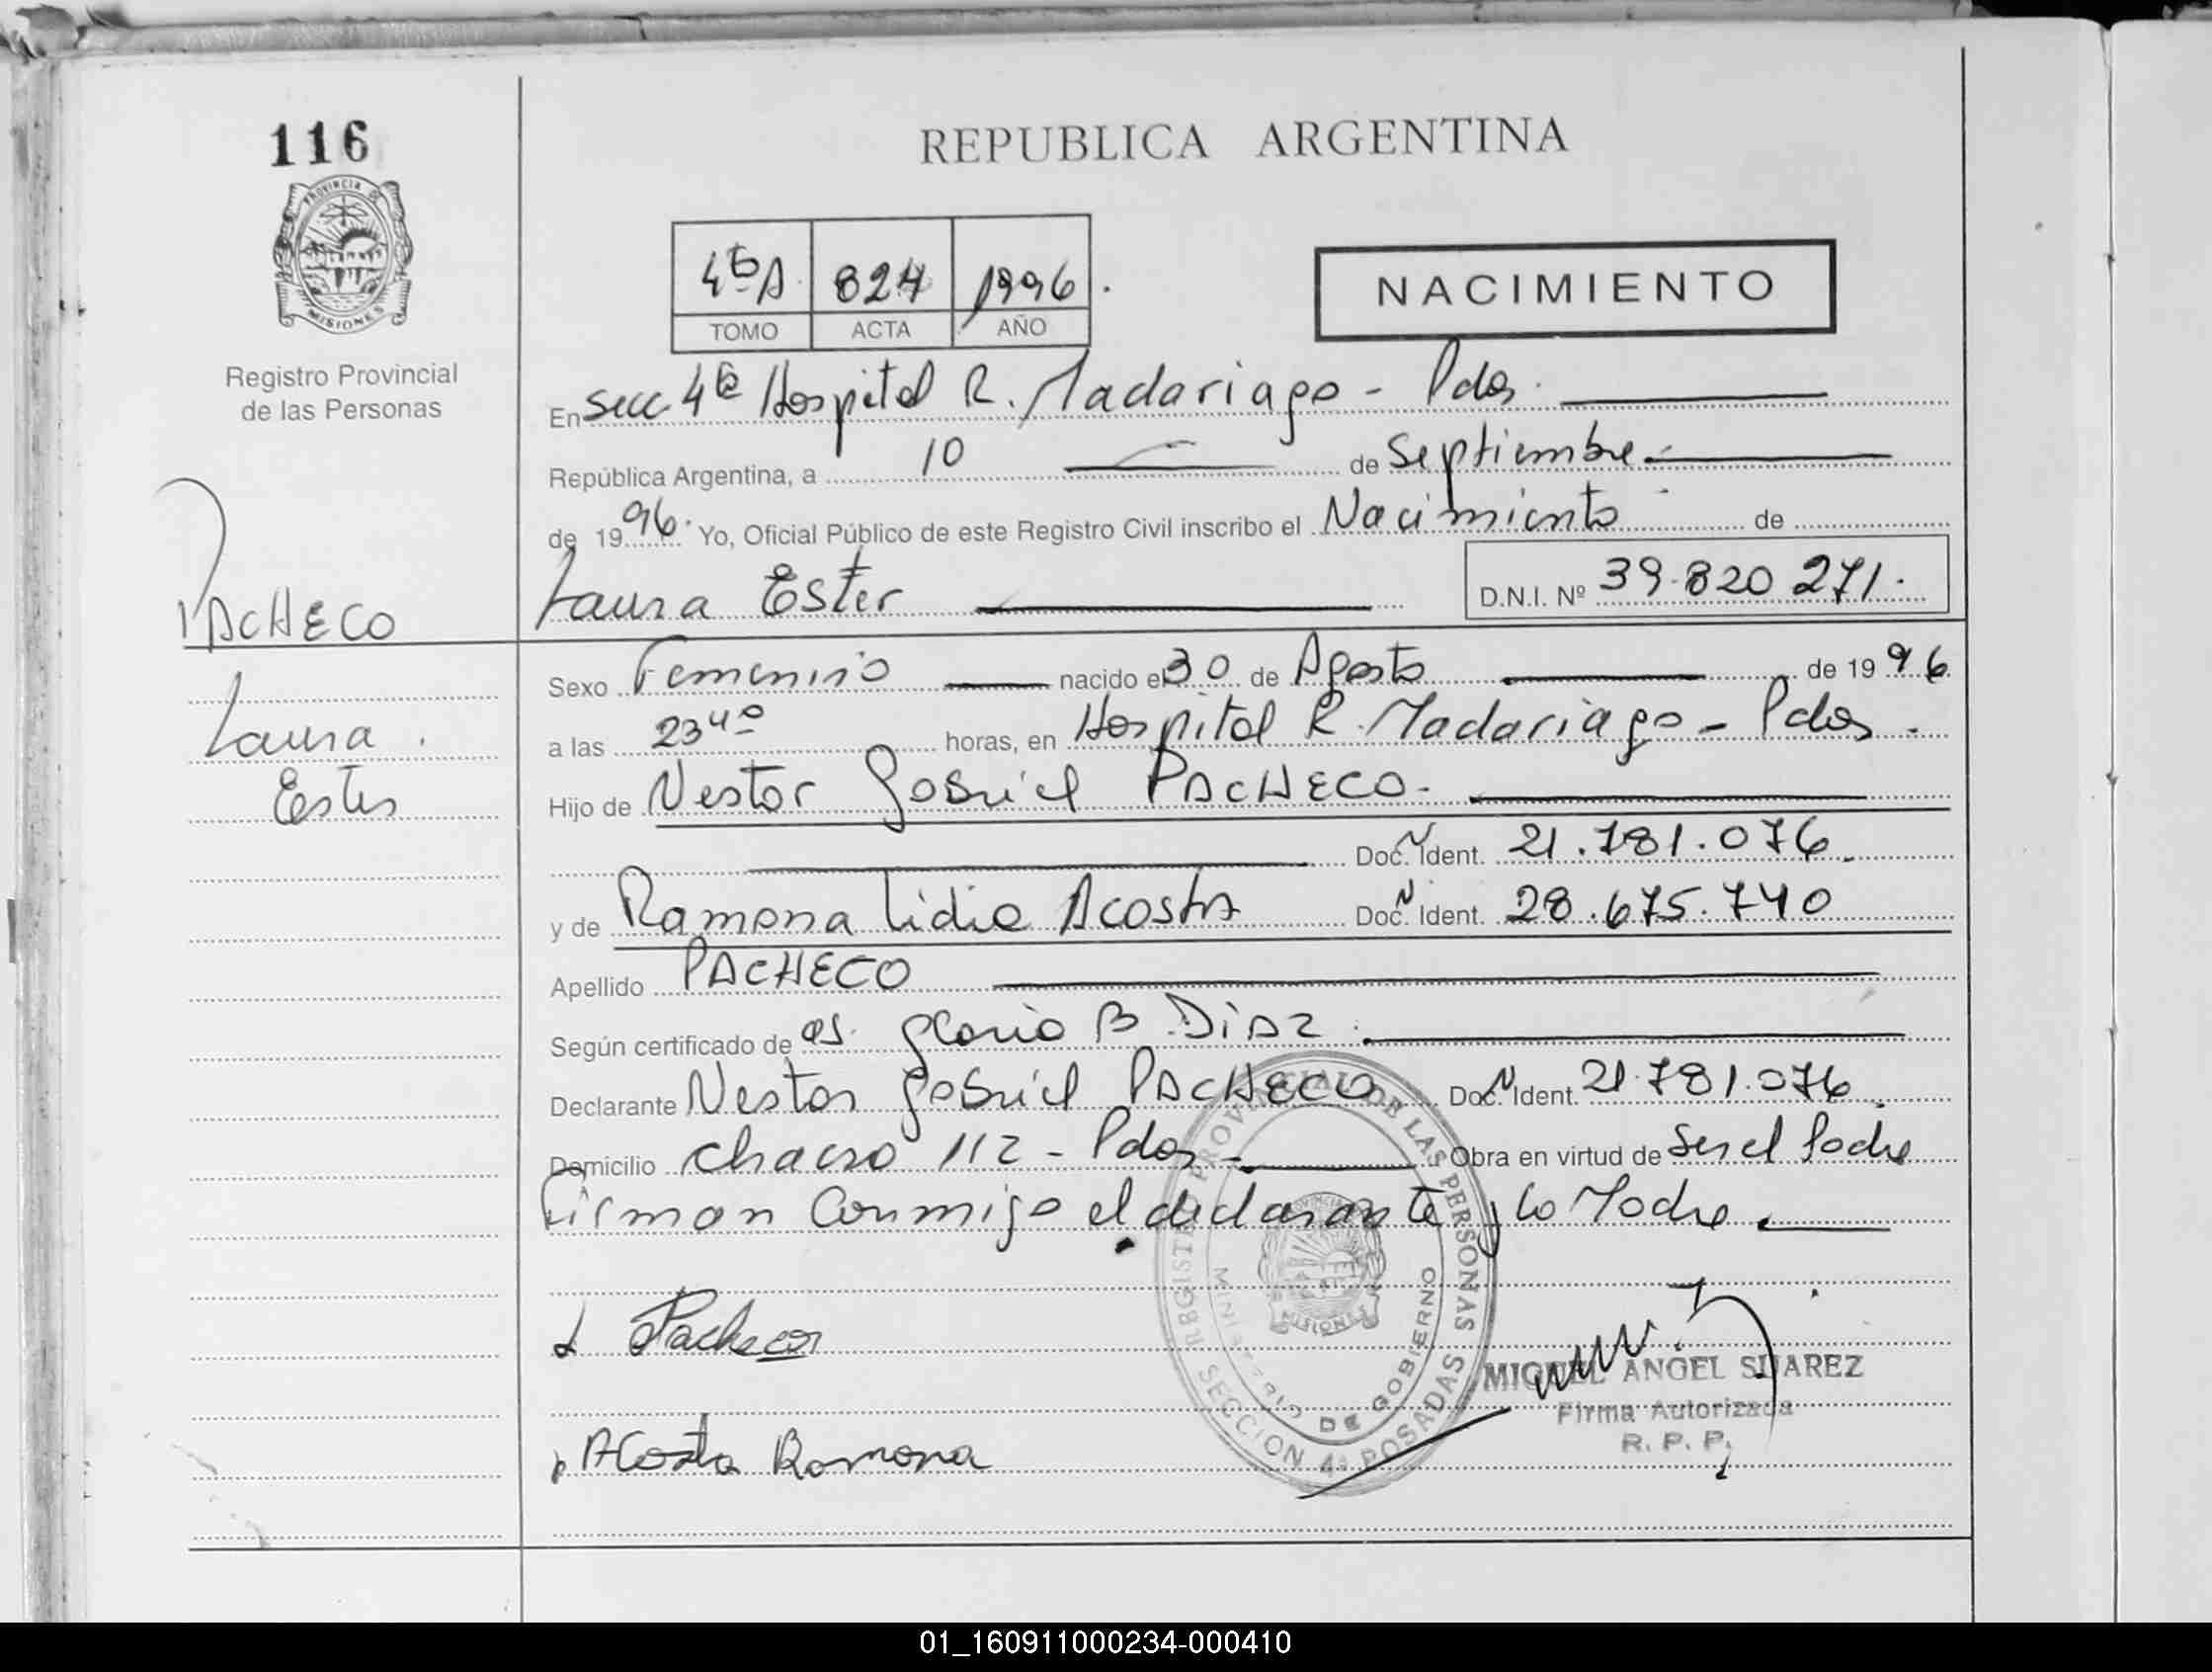 116
PROVINCIA DE
MISIONES
Registro Provincial
de las Personas
PACHECO
Laura
Ester
REPUBLICA ARGENTINA
824 1996
TOMO ACTA AÑO
NACIMIENTO
En Secc 4ta Hospital R. Madariaga - Pdas.
República Argentina, a 10 de Septiembre
de 1996. Yo, Oficial Público de este Registro Civil inscribo el Nacimiento de
Laura Ester D.N.I. Nº 39.820 271.
Sexo Femenino nacido el 30 de Agosto de 1996
a las 23 40 horas, en Hospital R. Madariaga - Pdas.
Hijo de Nestor Gabriel PACHECO.
Doc. Ident. 21.781.076
y de Ramona Lidia Acosta Doc. Ident. 28.675.740
Apellido PACHECO
Según certificado de Gloria B. Diaz
Declarante Nestor Gabriel PACHECO Doc. Ident. 21.781.076
Domicilio Chacra 112 - Pdas - Obra en virtud de Ser el Padre
Firman Conmigo el declarante y la Madre
Pacheco
Acosta Ramona
REGISTRO PROVINCIAL DE LAS PERSONAS
MINISTERIO DE GOBIERNO
MISIONES
SECCION 4ª POSADAS
MIGUEL ANGEL SUAREZ
Firma Autorizada
R. P. P.
01_160911000234-000410